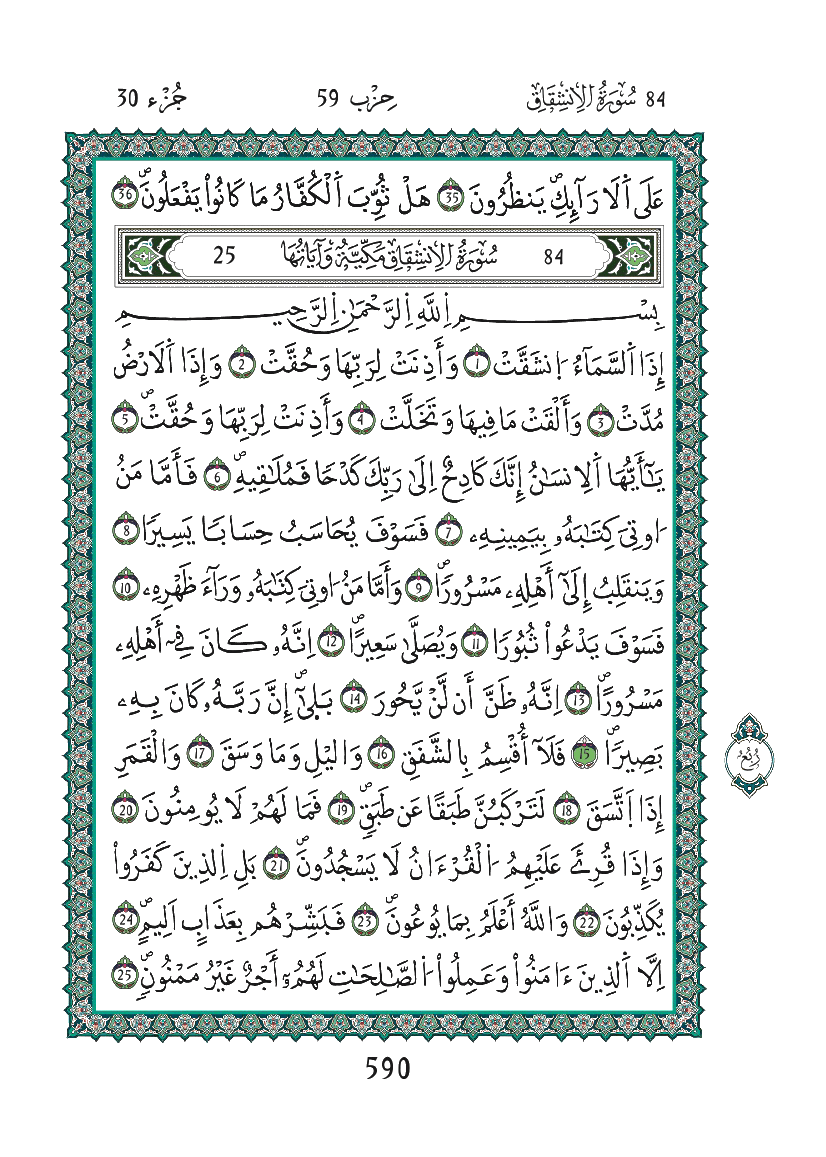 84 سُورَةُ الِانشِقَاقِ حِزْب 59 جُزْء 30
عَلَى اَ۬لَارَآئِكِ يَنظُرُونَۖ 35 هَلْ ثُوِّبَ اَ۬لْكُفَّارُ مَا كَانُواْ يَفْعَلُونَۖ 36
84 سُورَةُ الِانشِقَاقِ مَكِّيَّةٌ وَآيَاتُهَا 25
بِسْمِ اِ۬للَّهِ اِ۬لرَّحْمَٰنِ اِ۬لرَّحِيمِ
إِذَا اَ۬لسَّمَآءُ اُ۪نشَقَّتْ 1 وَأَذِنَتْ لِرَبِّهَا وَحُقَّتْ 2 وَإِذَا اَ۬لَارْضُ
مُدَّتْ 3 وَأَلْقَتْ مَا فِيهَا وَتَخَلَّتْ 4 وَأَذِنَتْ لِرَبِّهَا وَحُقَّتْۖ 5
يَٰٓأَيُّهَا اَ۬لِانسَٰنُ إِنَّكَ كَادِحٌ إِلَىٰ رَبِّكَ كَدْحًا فَمُلَٰقِيهِۖ 6 فَأَمَّا مَنُ
ا۟وتِيَ كِتَٰبَهُۥ بِيَمِينِهِۦ 7 فَسَوْفَ يُحَاسَبُ حِسَابًا يَسِيرًا 8
وَيَنقَلِبُ إِلَىٰٓ أَهْلِهِۦ مَسْرُورًاۖ 9 وَأَمَّا مَنُ ا۟وتِيَ كِتَٰبَهُۥ وَرَآءَ ظَهْرِهِۦ 10
فَسَوْفَ يَدْعُواْ ثُبُورًا 11 وَيُصَلَّىٰ سَعِيرًاۖ 12 اِنَّهُۥ كَانَ فِےٓ أَهْلِهِۦ
مَسْرُورًاۖ 13 اِنَّهُۥ ظَنَّ أَن لَّنْ يَّحُورَ 14 بَلَىٰٓۖ إِنَّ رَبَّهُۥ كَانَ بِهِۦ
بَصِيرًاۖ 15 فَلَآ أُقْسِمُ بِالشَّفَقِ 16 وَاليْلِ وَمَا وَسَقَ 17 وَالْقَمَرِ
إِذَا اَ۪تَّسَقَ 18 لَتَرْكَبُنَّ طَبَقًا عَن طَبَقٍۖ 19 فَمَا لَهُمْ لَا يُومِنُونَ 20
وَإِذَا قُرِئَ عَلَيْهِمُ اُ۬لْقُرْءَانُ لَا يَسْجُدُونَۖ 21 بَلِ اِ۬لذِينَ كَفَرُواْ
يُكَذِّبُونَ 22 وَاللَّهُ أَعْلَمُ بِمَا يُوعُونَۖ 23 فَبَشِّرْهُم بِعَذَابٍ اَلِيمٍۖ 24
اِلَّا اَ۬لذِينَ ءَامَنُواْ وَعَمِلُواْ اُ۬لصَّٰلِحَٰتِ لَهُمُۥٓ أَجْرٌ غَيْرُ مَمْنُونٍۖ 25
رُبُعُ
590